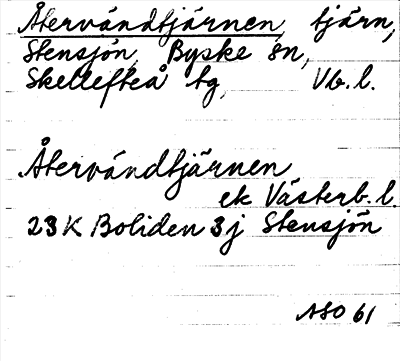 Återvändtjärnen, tjärn,
Stensjön, Byske sn,
Skellefteå tg, Vb. l.
Återvändtjärnen
ek Västerb. l.
23K Boliden 3j Stensjön
ASO 61